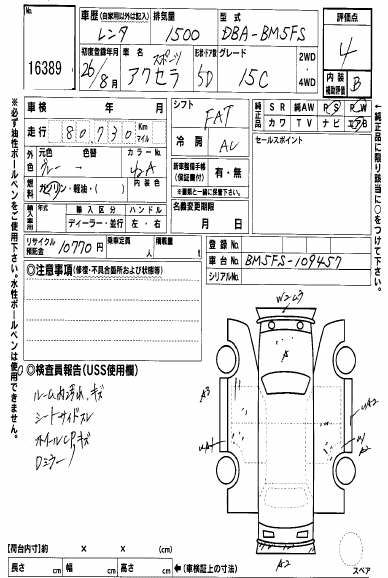 No. 16389
車歴 (自家用以外は記入) レンタ
排気量 1500
型式 DBA-BM5FS
評価点 4
初度登録年月 26/8月
車名 アクセラ スポーツ
形状・ドア数 5D
グレード 15C
2WD
4WD
内装補助評価 B
車検 年 月
走行 80,730 Km マイル
シフト FAT
冷房 AC
純正品 SR 純AW PS PW
カワ TV ナビ エアB
セールスポイント
外色 元色 色替 カラーNo.
グレー → 42A
燃料 ガソリン・軽油・( ) 内装色
新車整備手帳 (保証書付) 有・無
※書類と一緒に保管下さい。
輸入車 年式 輸入区分 ハンドル
ディーラー・並行 左・右
名義変更期限 月 日
リサイクル預託金 10770円
乗車定員 人
積載量 t
登録No.
車台No. BM5FS-109457
シリアルNo.
◎注意事項 (修復・不具合箇所および状態等)
◎検査員報告 (USS使用欄)
ルーム内汚れ、キズ
シートサイドスレ
ホイールCPキズ
Dミラー/
W2 U3
A
A3
UA1
UA2
W1
A2
A2
スペア
【荷台内寸】約 × × (cm)
長さ cm 幅 cm 高さ cm ←(車検証上の寸法)
※必ず油性ボールペンをご使用下さい。水性ボールペンは使用できません。
←純正品に限り該当に○をつけて下さい。